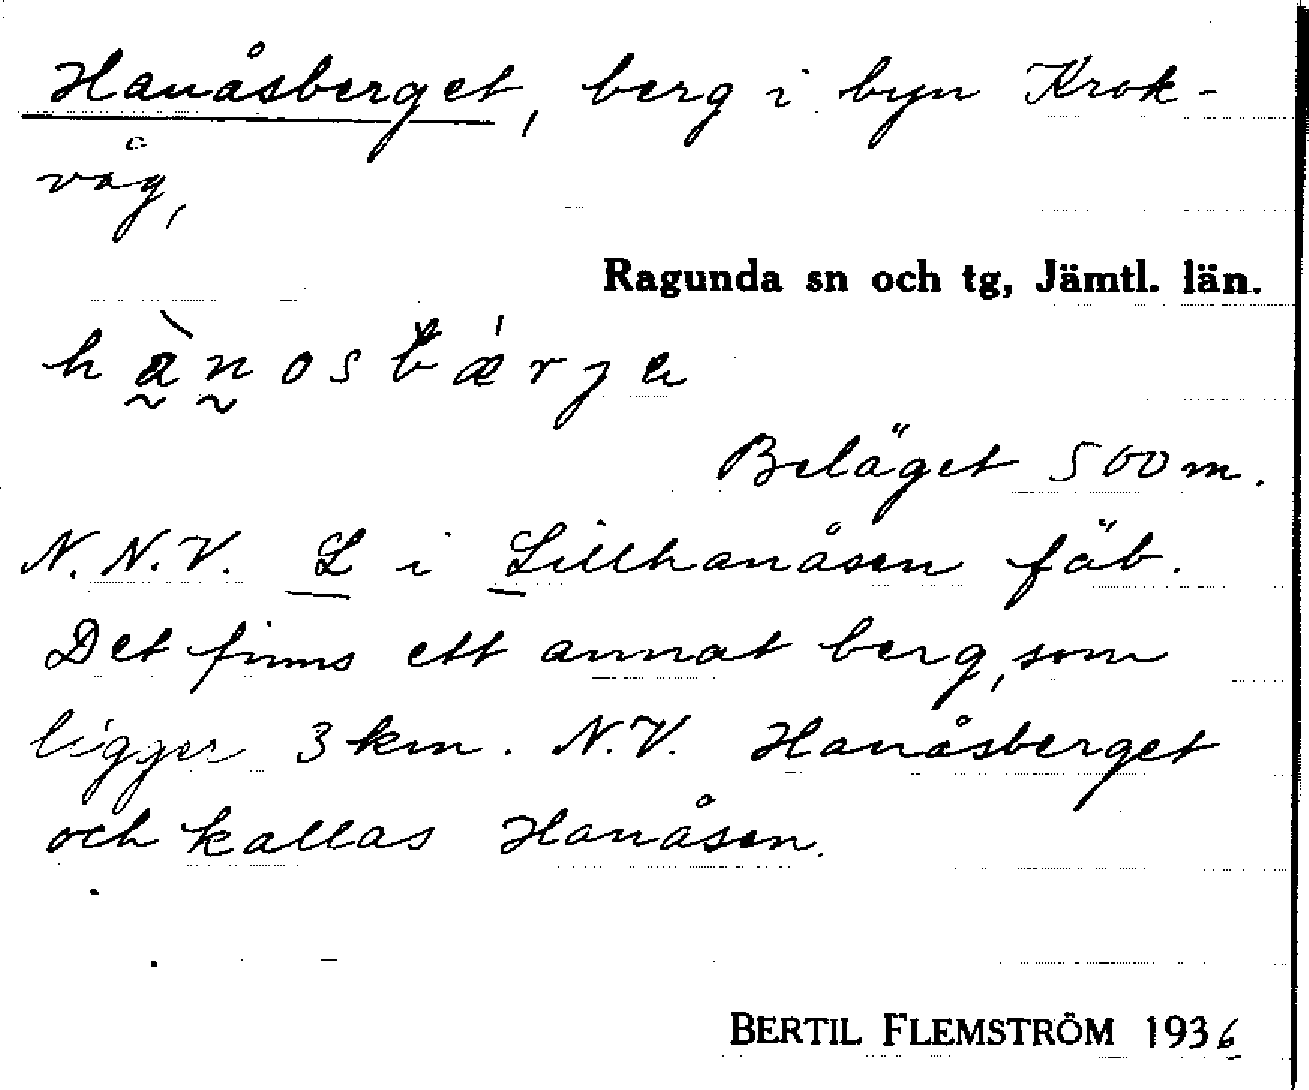 Hanåsberget, berg i byn Krok-
våg,
Ragunda sn och tg, Jämtl. län.
hànosbǽrje
Beläget 500 m.
N.N.V. L i Lillhanåsen fäb.
Det finns ett annat berg, som
ligger 3 km. N.V. Hanåsberget
och kallas Hanåsen.
BERTIL FLEMSTRÖM 1936